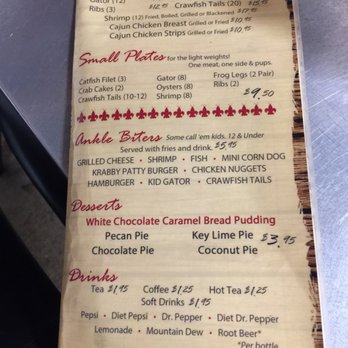 Gator (12)
Ribs (3) $12.95 Crawfish Tails (20) $15.95
Shrimp (12) Fried, Boiled, Grilled or Blackened $17.95
Cajun Chicken Breast Grilled or Fried
Cajun Chicken Strips Grilled or Fried $10.95
Small Plates for the light weights!
One meat, one side & pups.
Catfish Filet (3) Gator (8) Frog Legs (2 Pair)
Crab Cakes (2) Oysters (8) Ribs (2)
Crawfish Tails (10-12) Shrimp (8) $9.50
Ankle Biters Some call 'em kids. 12 & Under
Served with fries and drink. $5.95
GRILLED CHEESE • SHRIMP • FISH • MINI CORN DOG
KRABBY PATTY BURGER • CHICKEN NUGGETS
HAMBURGER • KID GATOR • CRAWFISH TAILS
Desserts
White Chocolate Caramel Bread Pudding
Pecan Pie Key Lime Pie $3.95
Chocolate Pie Coconut Pie
Drinks
Tea $1.95 Coffee $1.25 Hot Tea $1.25
Soft Drinks $1.95
Pepsi • Diet Pepsi • Dr. Pepper • Diet Dr. Pepper
Lemonade • Mountain Dew • Root Beer*
*Per bottle